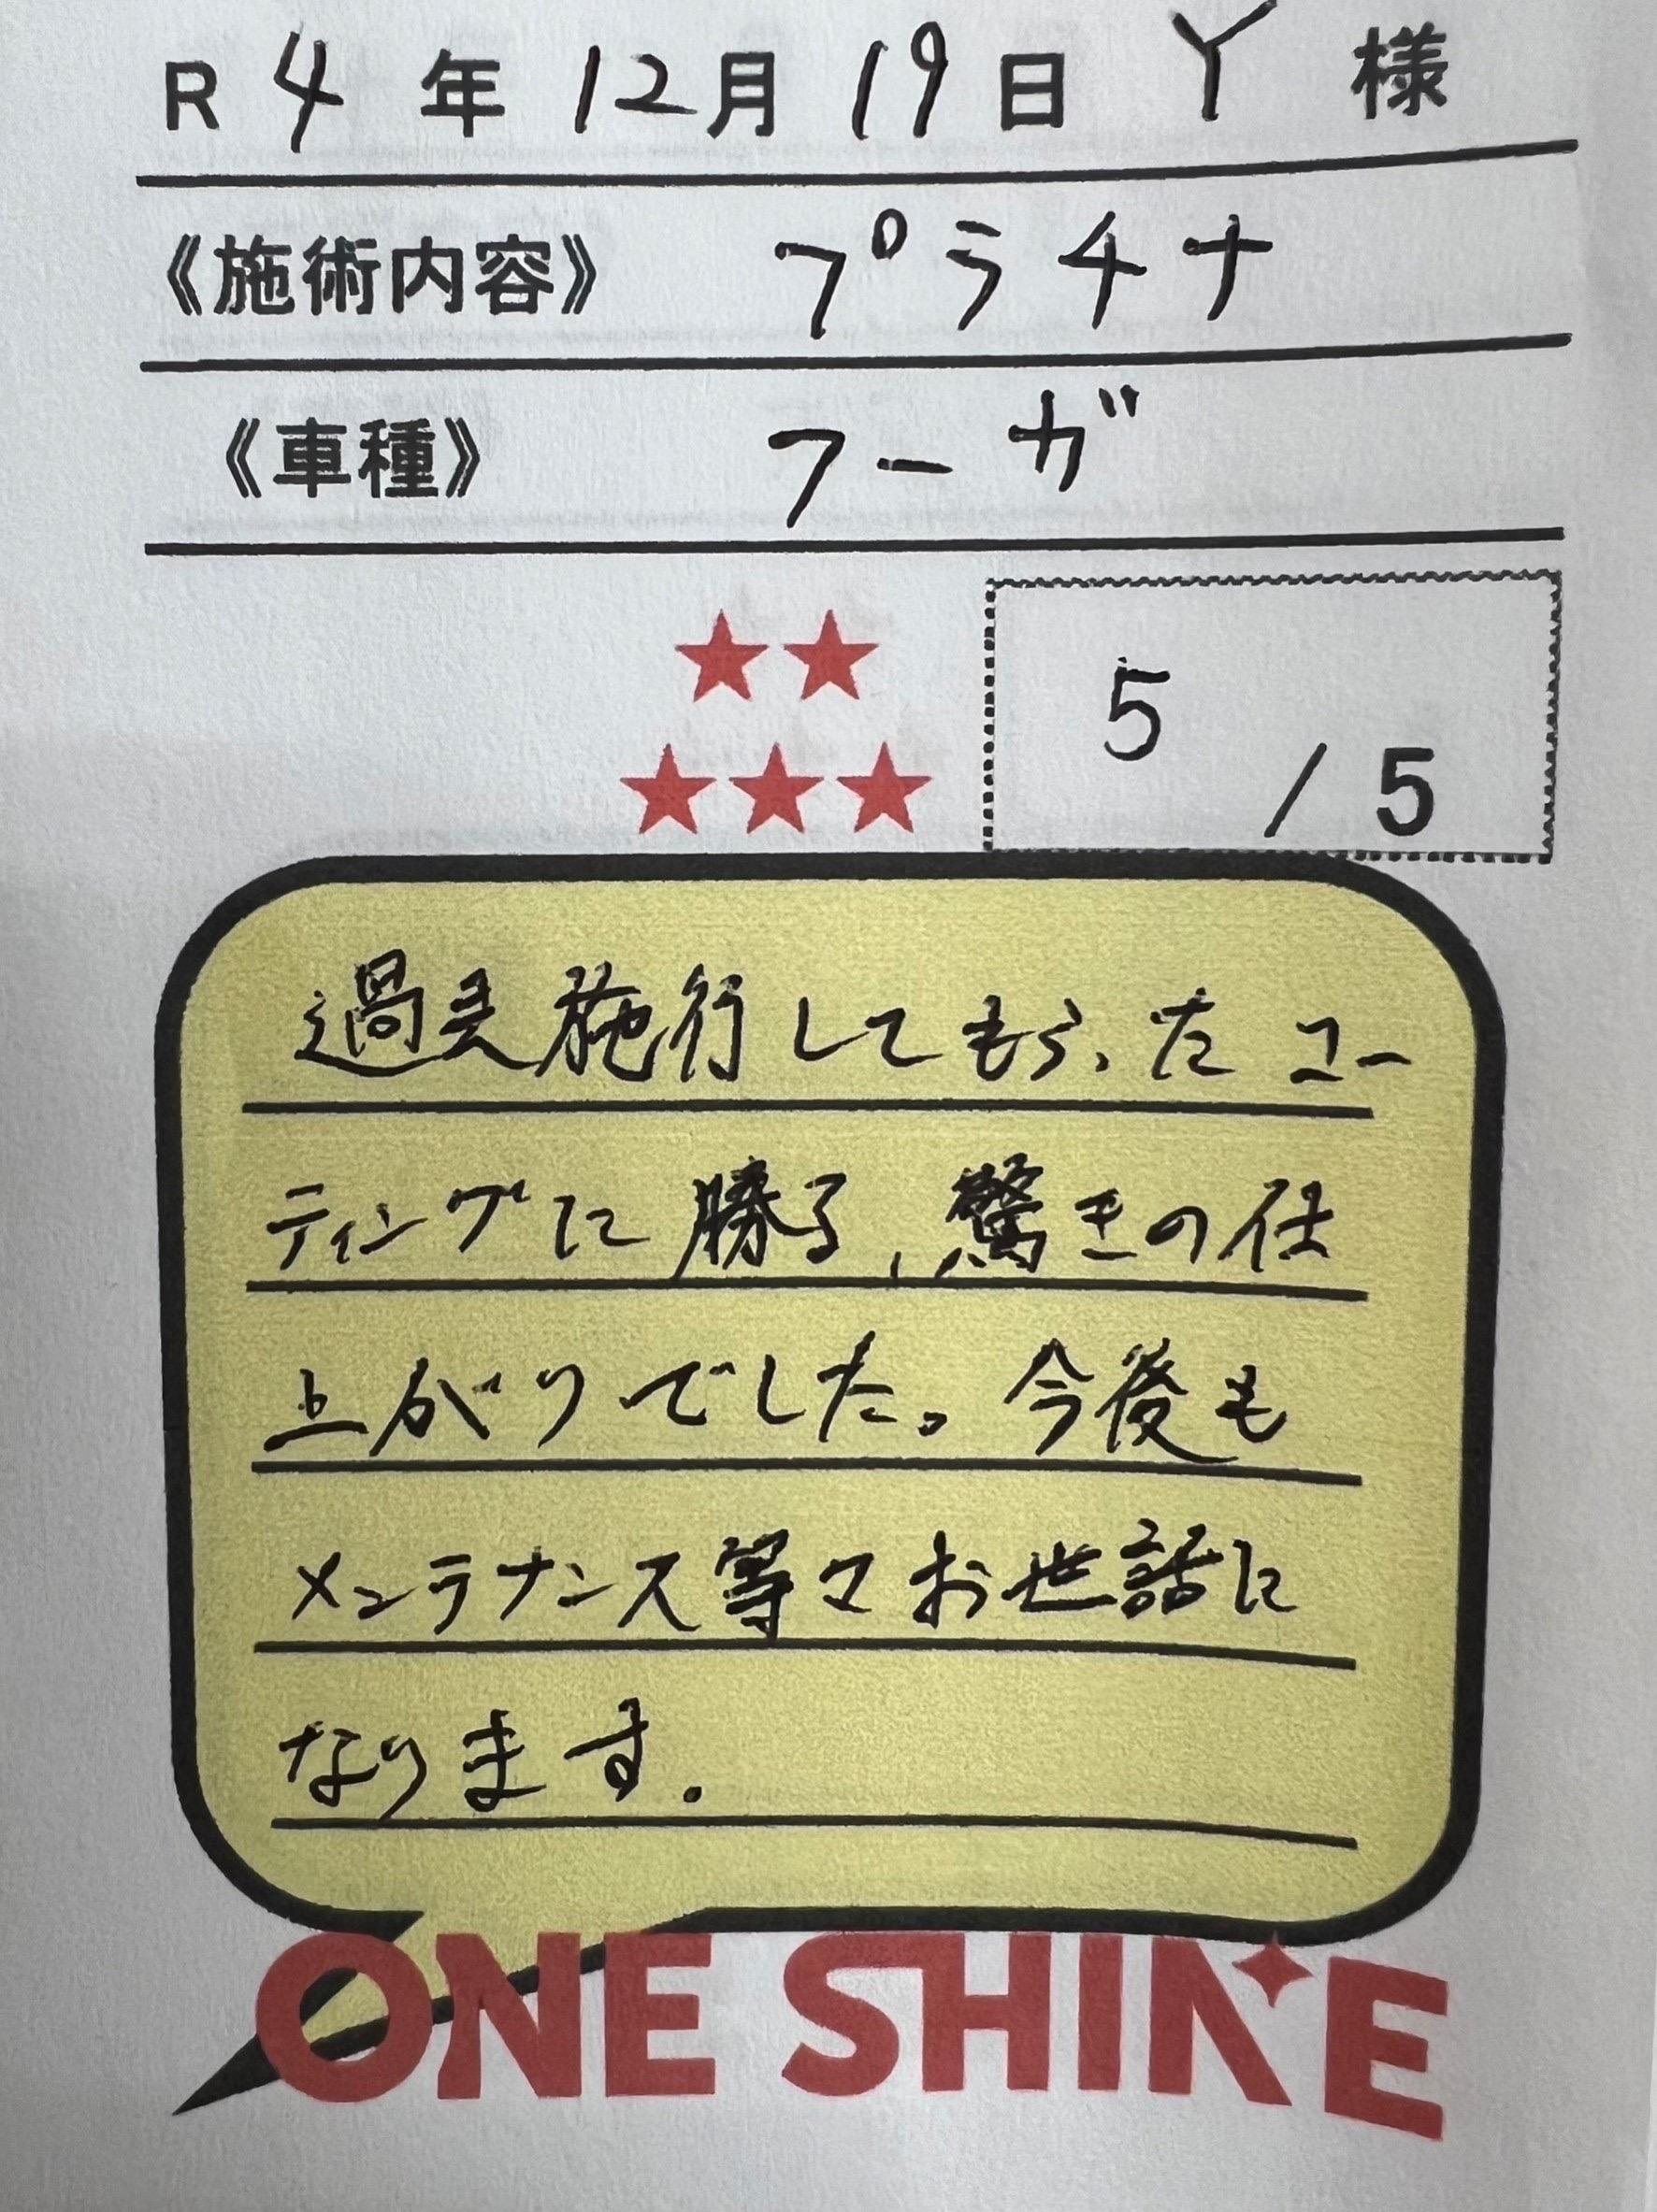 R 4 年 12月 19日 Y 様
《施術内容》 プラチナ
《車種》 フーガ
5 / 5
過去施行してもらったコー
ティングに勝る、驚きの仕
上がりでした。今後も
メンテナンス等々お世話に
なります.
ONE SHINE